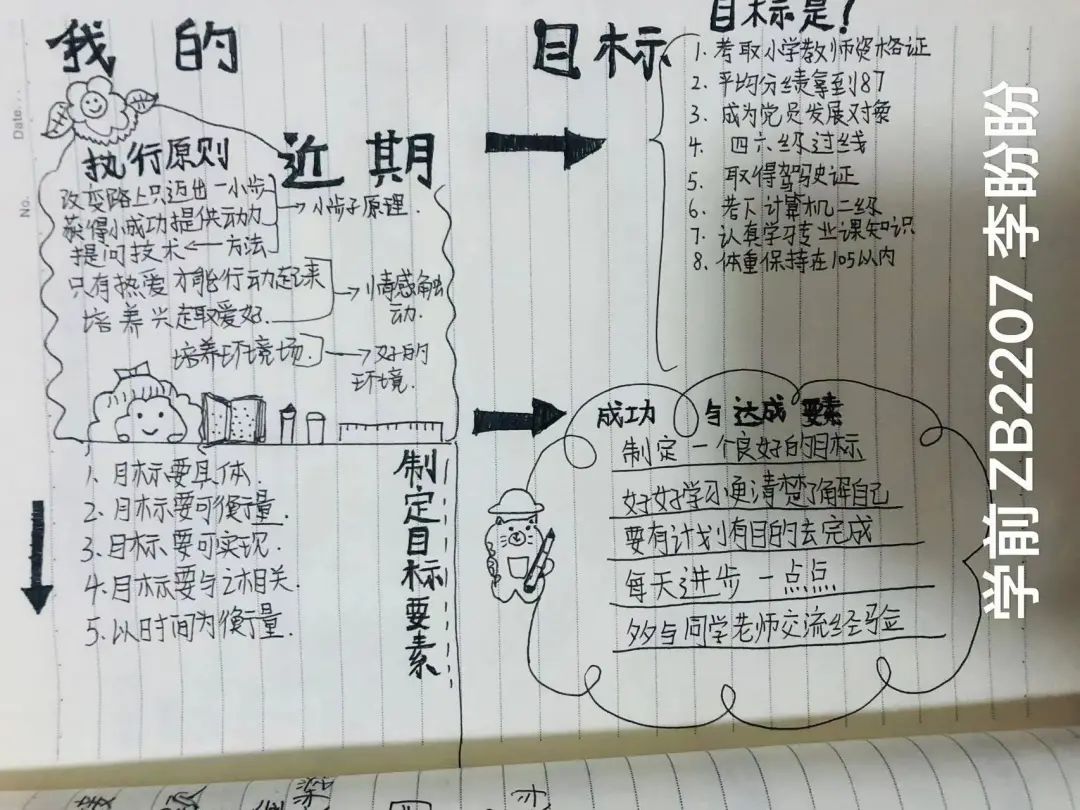 我的 目标
目标是?
1. 考取小学教师资格证
2. 平均分绩拿到87
3. 成为党员发展对象
4. 四六级过线
5. 取得驾驶证
6. 若下计算机二级
7. 认真学习专业课知识
8. 体重保持在105以内
近期
Date...
No.
执行原则
改变路上只迈出一小步
获得小成功提供动力
提问技术←方法
→小步子原理.
只有热爱才能行动起来
培养兴趣爱好.
→情感触
动.
培养环境场.→好的
环境.
制定目标要素
1. 目标要具体.
2. 目标要可衡量.
3. 目标要可实现.
4. 目标要与之相关.
5. 以时间为衡量.
成功与达成要素
制定一个良好的目标
好好学习更清楚了解自己
要有计划有目的去完成
每天进步一点点
多多与同学老师交流经验
学前 ZB2207 李盼盼